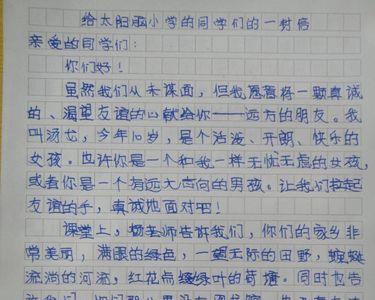 给太阳小学的同学们的一封信
亲爱的同学们：
你们好！
虽然我们从未谋面，但我愿意将一颗真诚
的、渴望友谊的心献给你——远方的朋友。我
叫汤，今年10岁，是个活泼、开朗、快乐的
女孩。也许你是一个和我一样无忧无虑的女孩，
或者你是一个有远大志向的男孩。让我们拉起
友谊的手，真诚地面对吧！
课堂上，杨老师告诉我们，你们的家乡非
常美丽，满眼的绿色，一望无际的田野，蜿蜒
流淌的河流，红花点缀绿叶的荷塘。同时也告